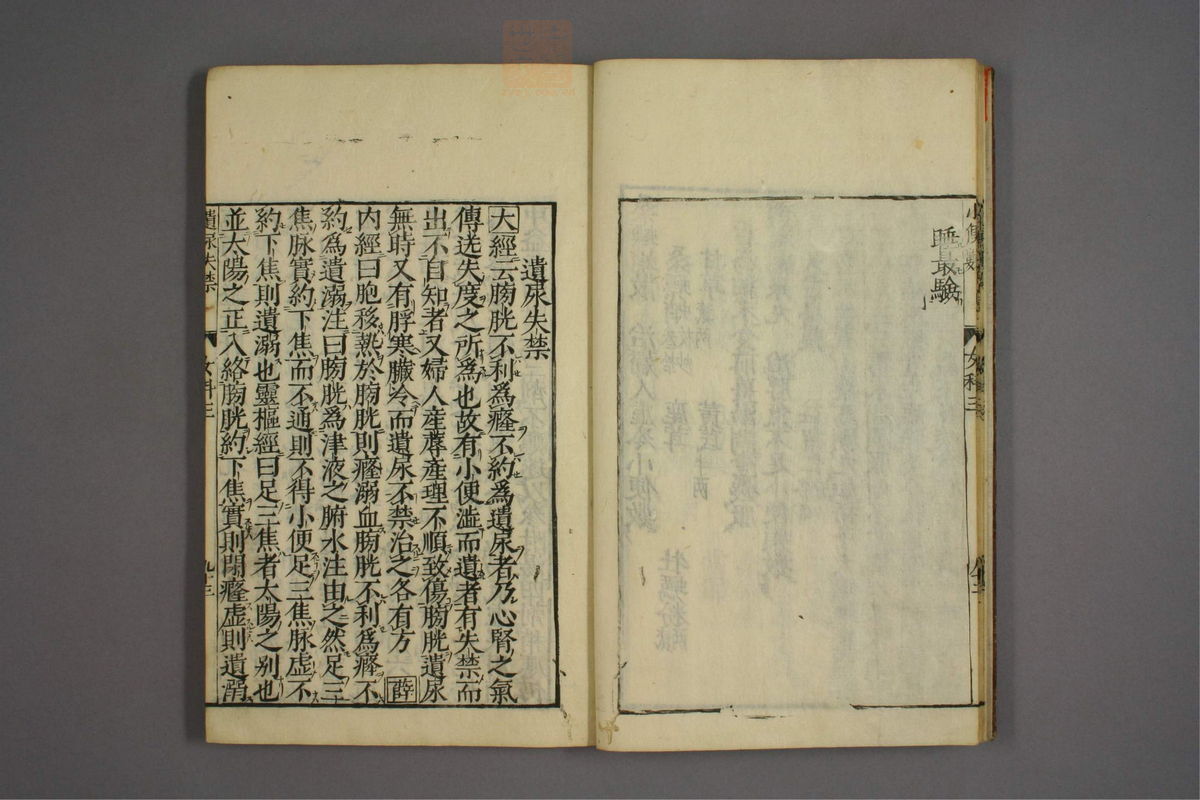 小便數
睡最驗
女科三
遺尿失禁
大經云胸胱不利為癃不約為遺尿者乃心腎之氣
傳送失度之所為也故有小便澁而遺者有失禁而
出不自知者又婦人産蓐産理不順致傷膀胱遺尿
無時又有脬寒臟冷而遺尿不禁治之各有方 薛
内經曰胞移熱於膀胱則癃溺血膀胱不利為癃不
約為遺溺注曰膀胱為津液之腑水注由之然足三
焦脉實約下焦而不通則不得小便足三焦脉虛不
約下焦則遺溺也靈樞經曰足三焦者太陽之别也
並太陽之正入絡膀胱約下焦實則閉癃虛則遺溺
遺尿失禁
女科三
九十三